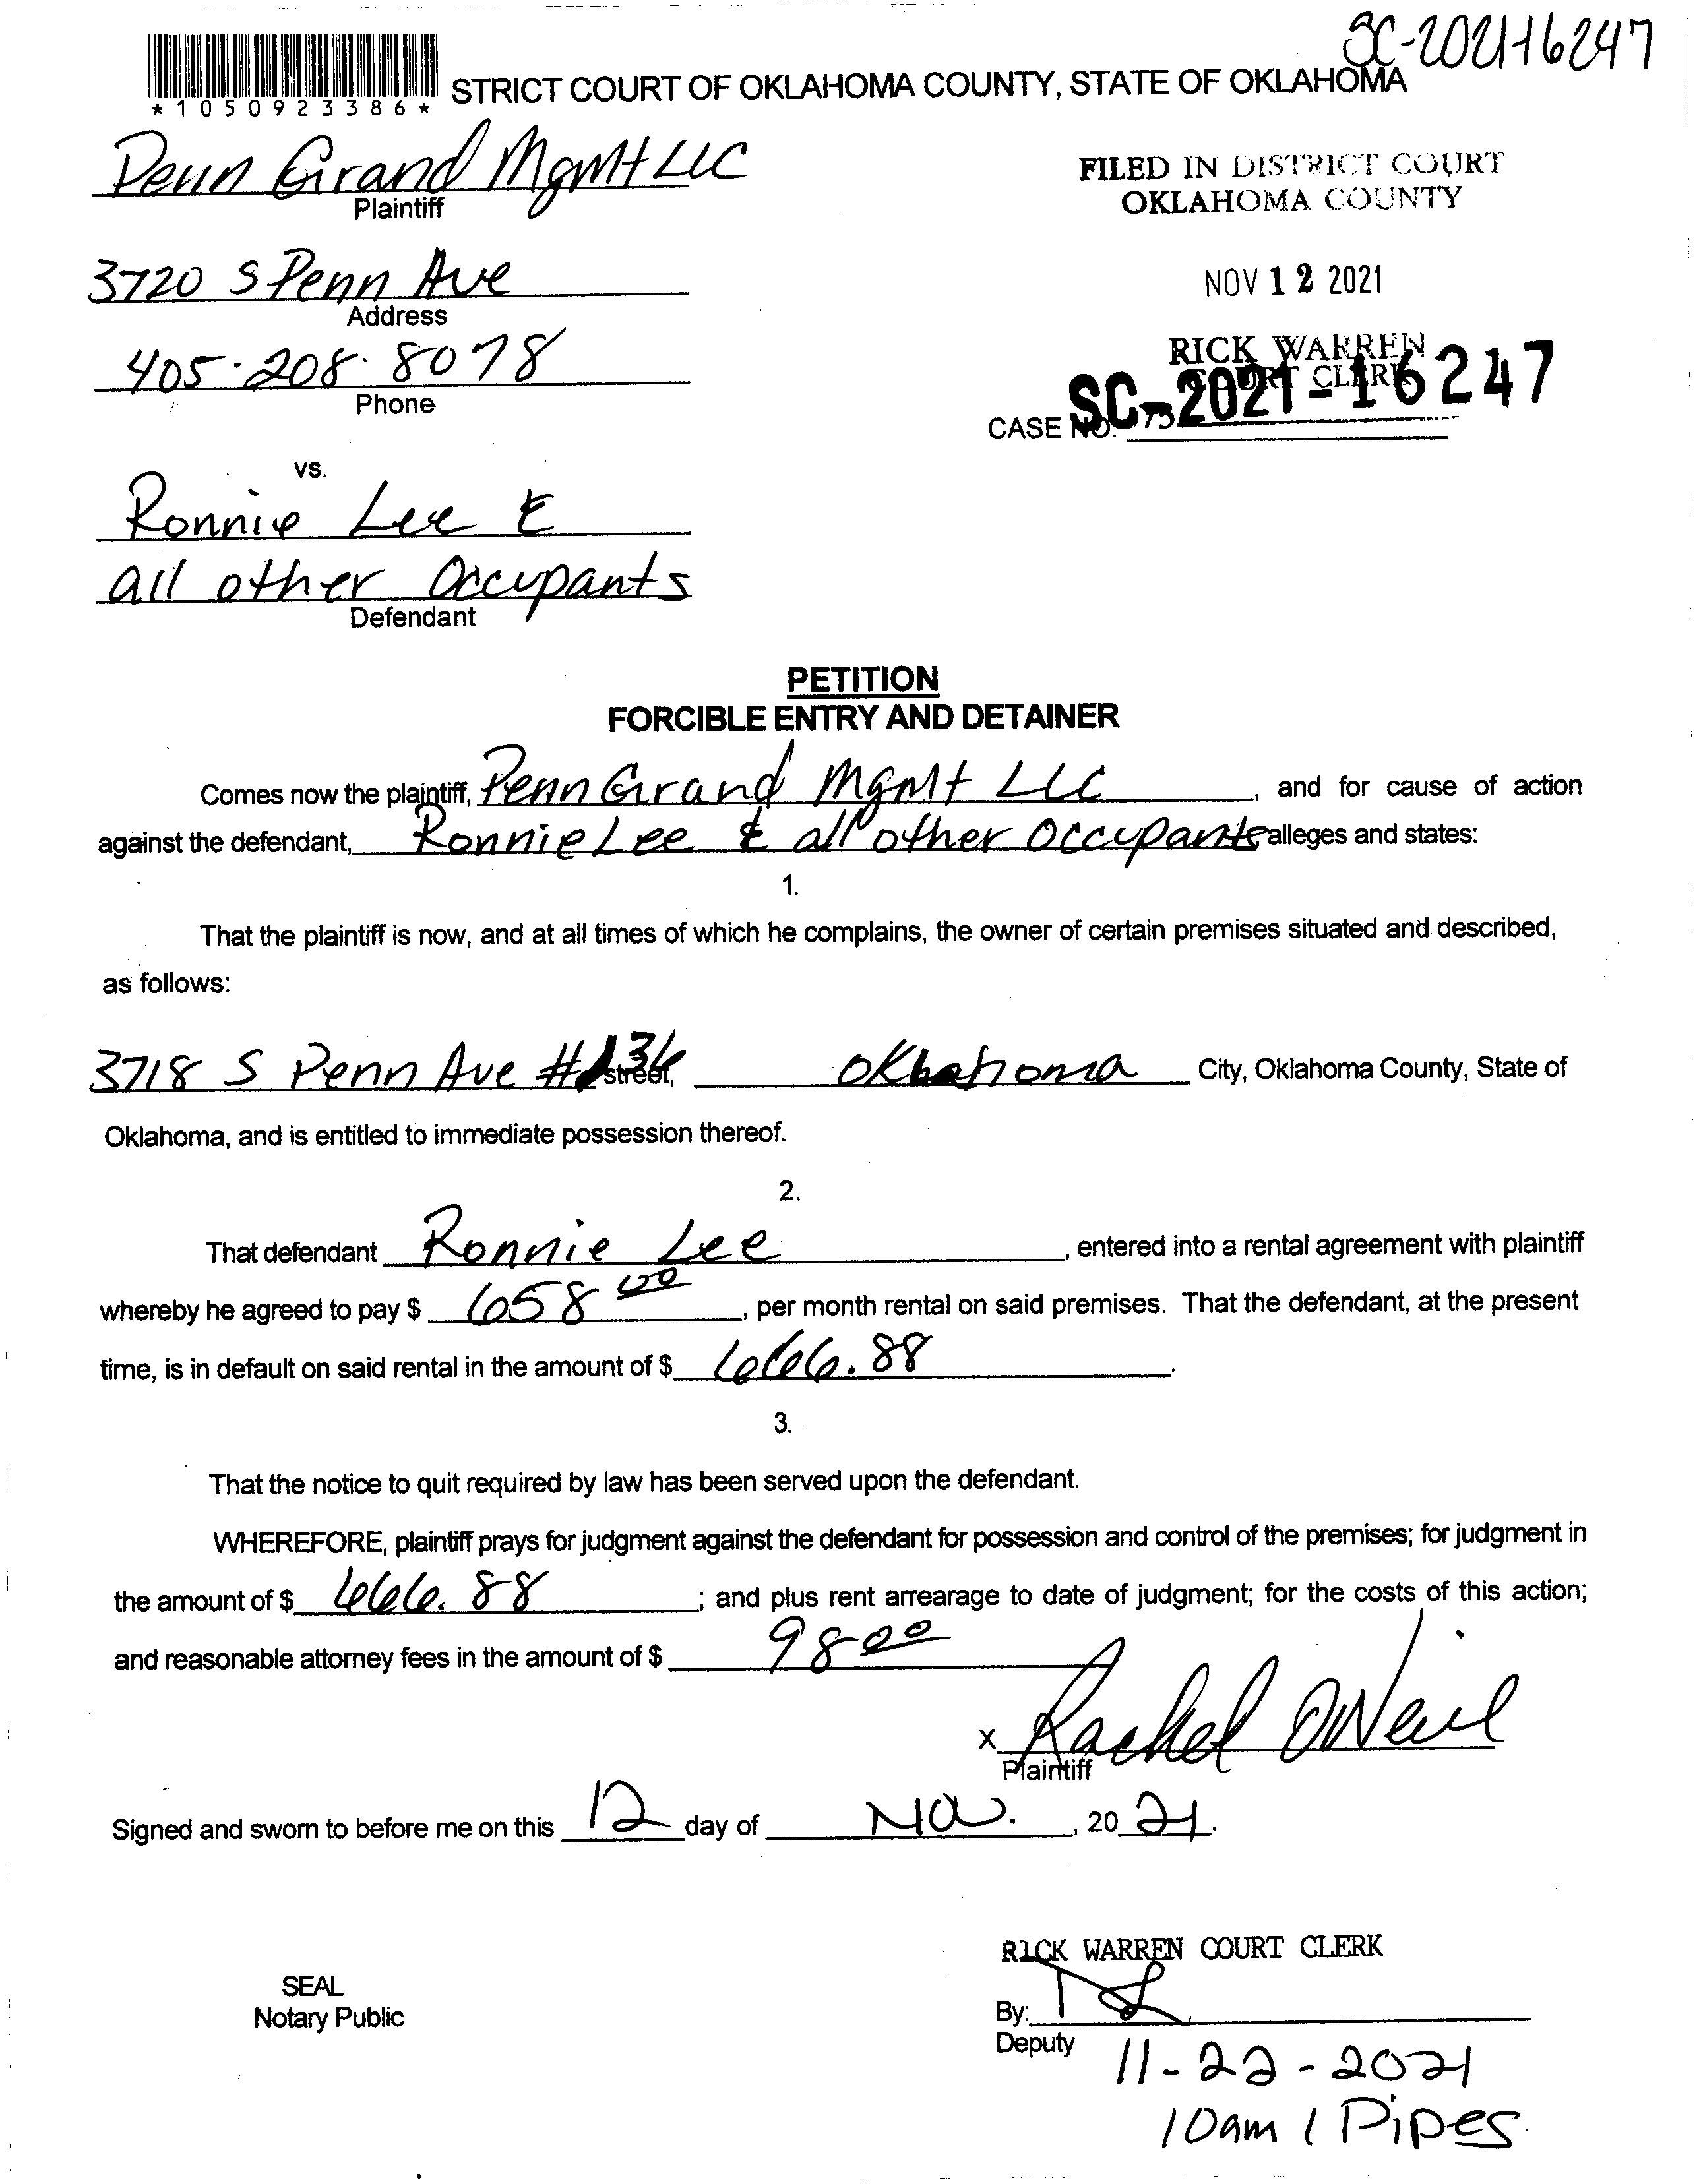 SC-2021-16247
*1050923386*
STRICT COURT OF OKLAHOMA COUNTY, STATE OF OKLAHOMA
Penn Grand Mgmt LLC
Plaintiff
FILED IN DISTRICT COURT
OKLAHOMA COUNTY
3720 S Penn Ave
Address
NOV 12 2021
405-208-8078
Phone
RICK WARREN
COURT CLERK
CASE NO. SC-2021-16247
vs.
Ronnie Lee &
all other Occupants
Defendant
PETITION
FORCIBLE ENTRY AND DETAINER
Comes now the plaintiff, Penn Grand Mgmt LLC, and for cause of action
against the defendant, Ronnie Lee & all other Occupants alleges and states:
1.
That the plaintiff is now, and at all times of which he complains, the owner of certain premises situated and described,
as follows:
3718 S Penn Ave # street, Oklahoma City, Oklahoma County, State of
Oklahoma, and is entitled to immediate possession thereof.
2.
That defendant Ronnie Lee, entered into a rental agreement with plaintiff
whereby he agreed to pay $ 658 00, per month rental on said premises. That the defendant, at the present
time, is in default on said rental in the amount of $ 666.88.
3.
That the notice to quit required by law has been served upon the defendant.
WHEREFORE, plaintiff prays for judgment against the defendant for possession and control of the premises; for judgment in
the amount of $ 666.88; and plus rent arrearage to date of judgment; for the costs of this action;
and reasonable attorney fees in the amount of $ 98 00
x Rachel ONeil
Plaintiff
Signed and sworn to before me on this 12 day of Nov., 20 21.
RICK WARREN COURT CLERK
SEAL
Notary Public
By:
Deputy
11-22-2021
10am / Pipes